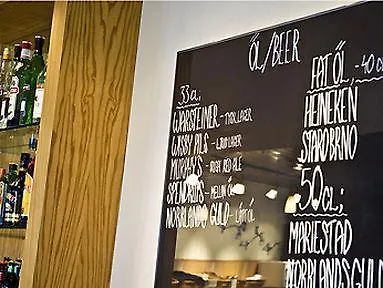 ÖL/BEER
33cl;
WARSTEINER - TYSK LAGER
WISBY PILS - LJUS LAGER
MURPHYS - IRISH RED ALE
SPENDRUPS - MELLAN ÖL
NORRLANDS GULD - LÄTTÖL
FAT ÖL, -40cl
HEINEKEN
STAROBRNO
50cl;
MARIESTAD
NORRLANDS GULD